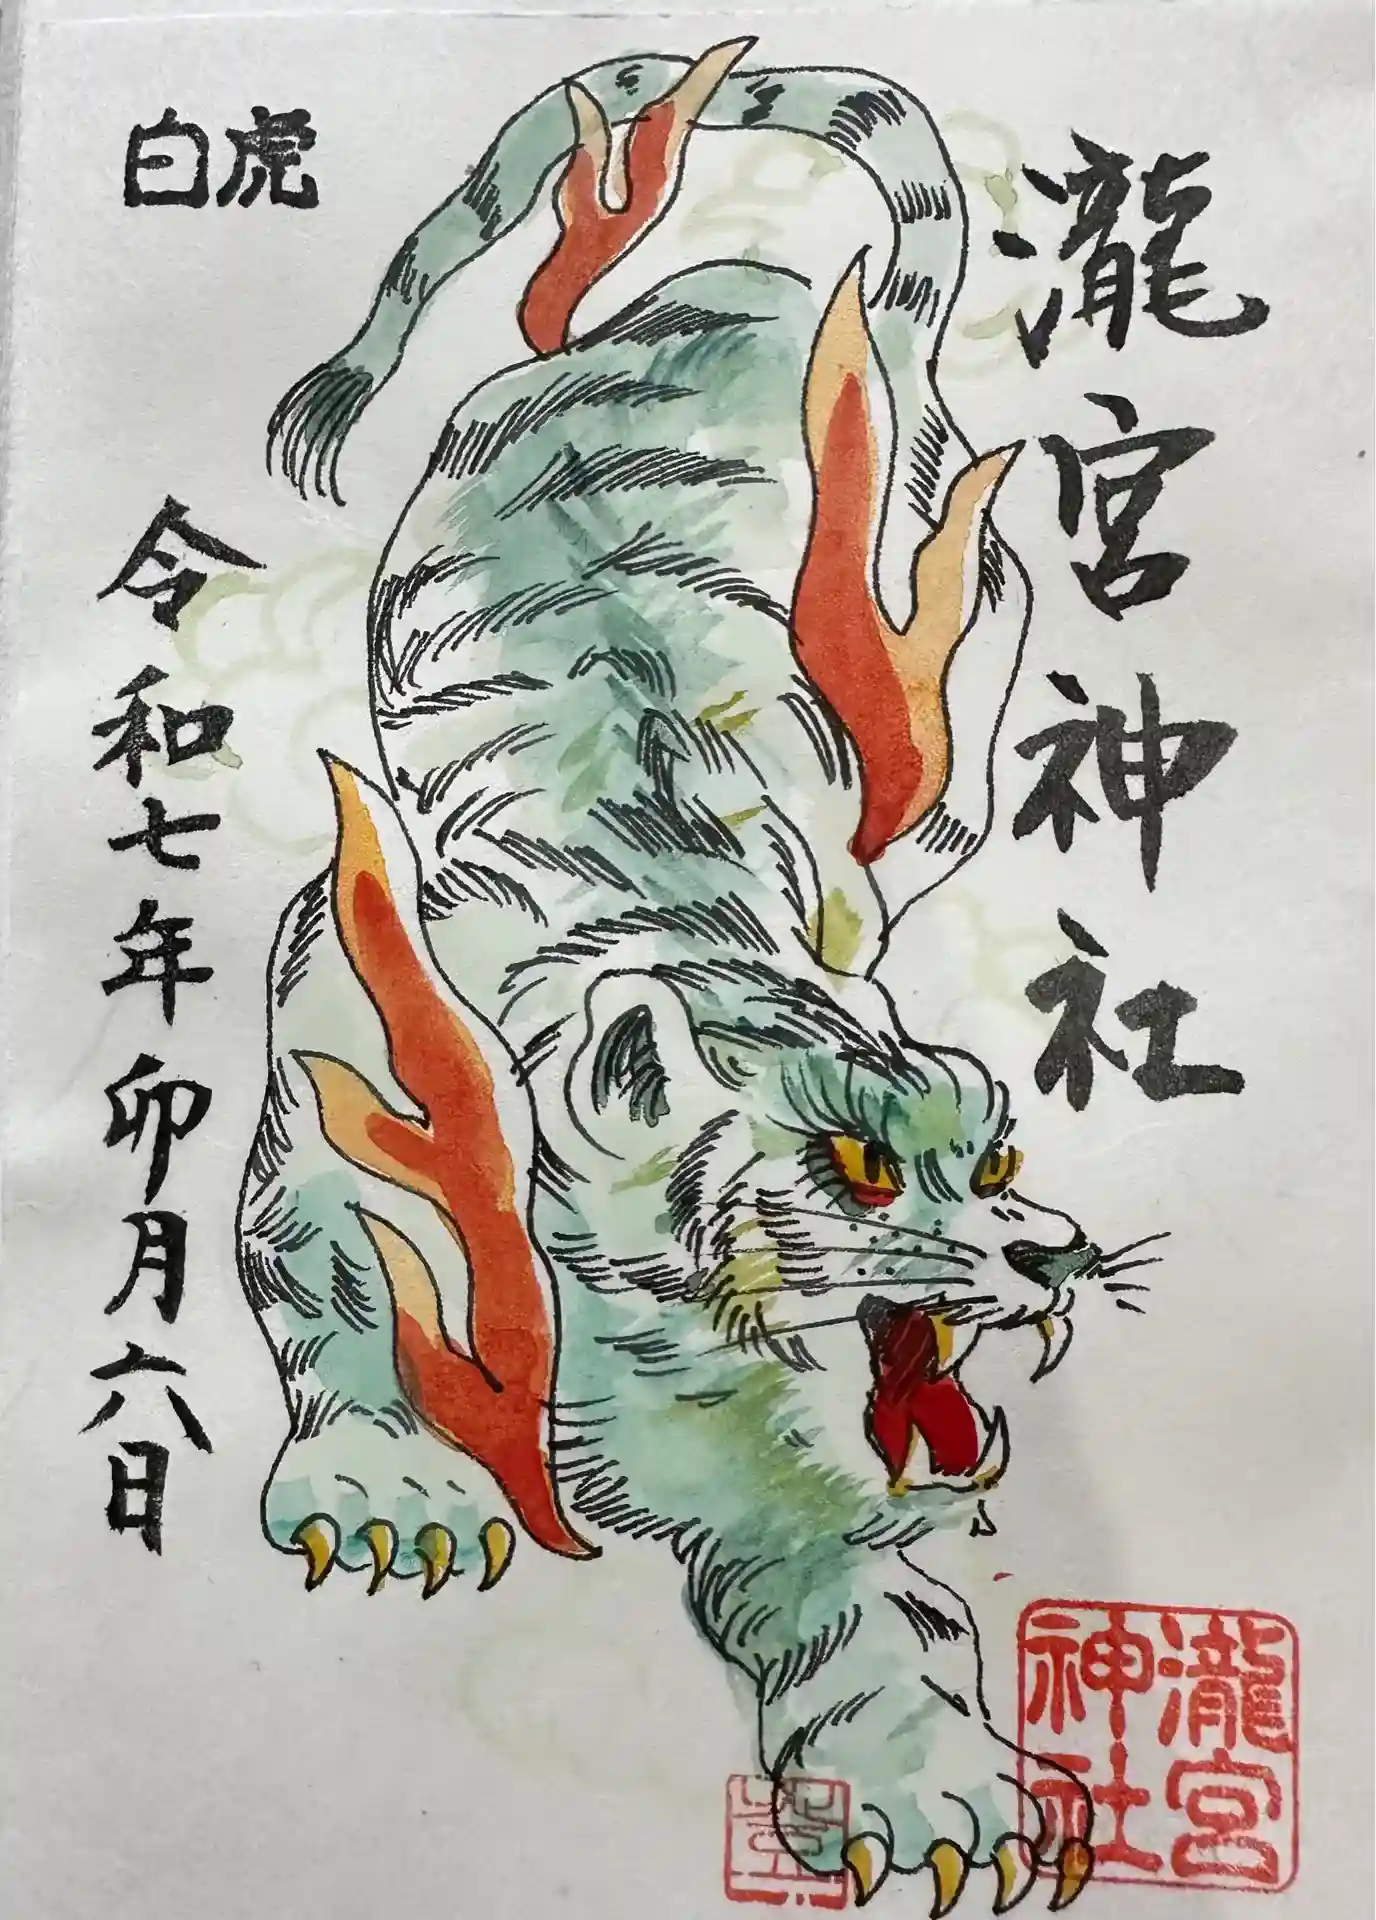 瀧宮神社
白虎
令和七年卯月六日
瀧宮
神社